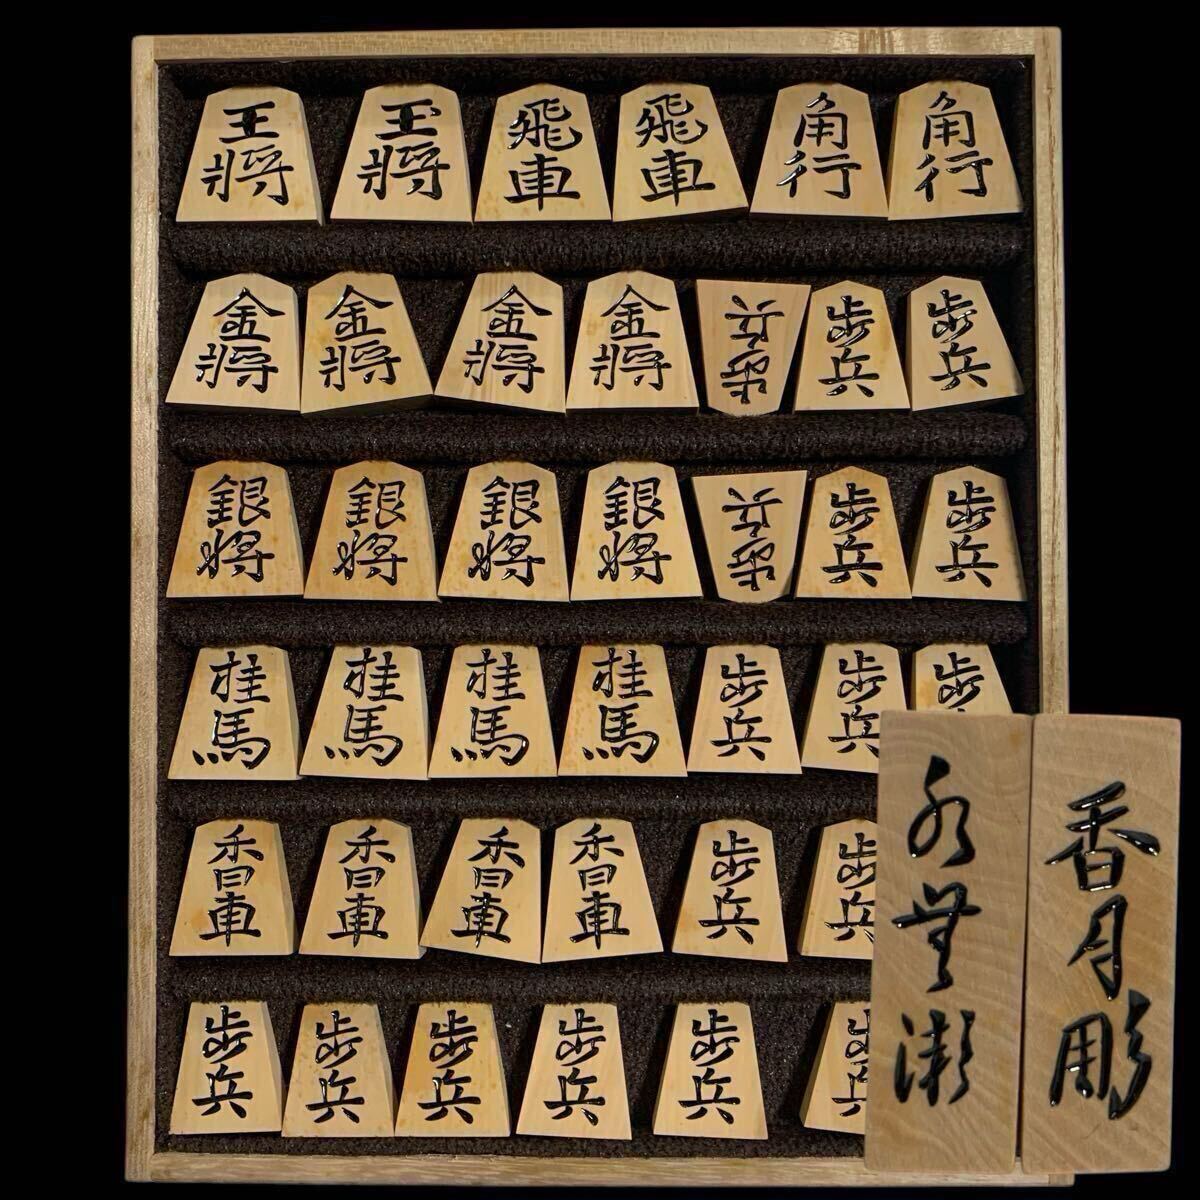 王将 玉将 飛車 飛車 角行 角行
金将 金将 金将 金将 歩兵 歩兵 歩兵
銀将 銀将 銀将 銀将 歩兵 歩兵 歩兵
桂馬 桂馬 桂馬 桂馬 歩兵 歩兵 歩
香車 香車 香車 香車 歩兵 歩兵
歩兵 歩兵 歩兵 歩兵 歩兵 歩兵
水無瀬
香月彫